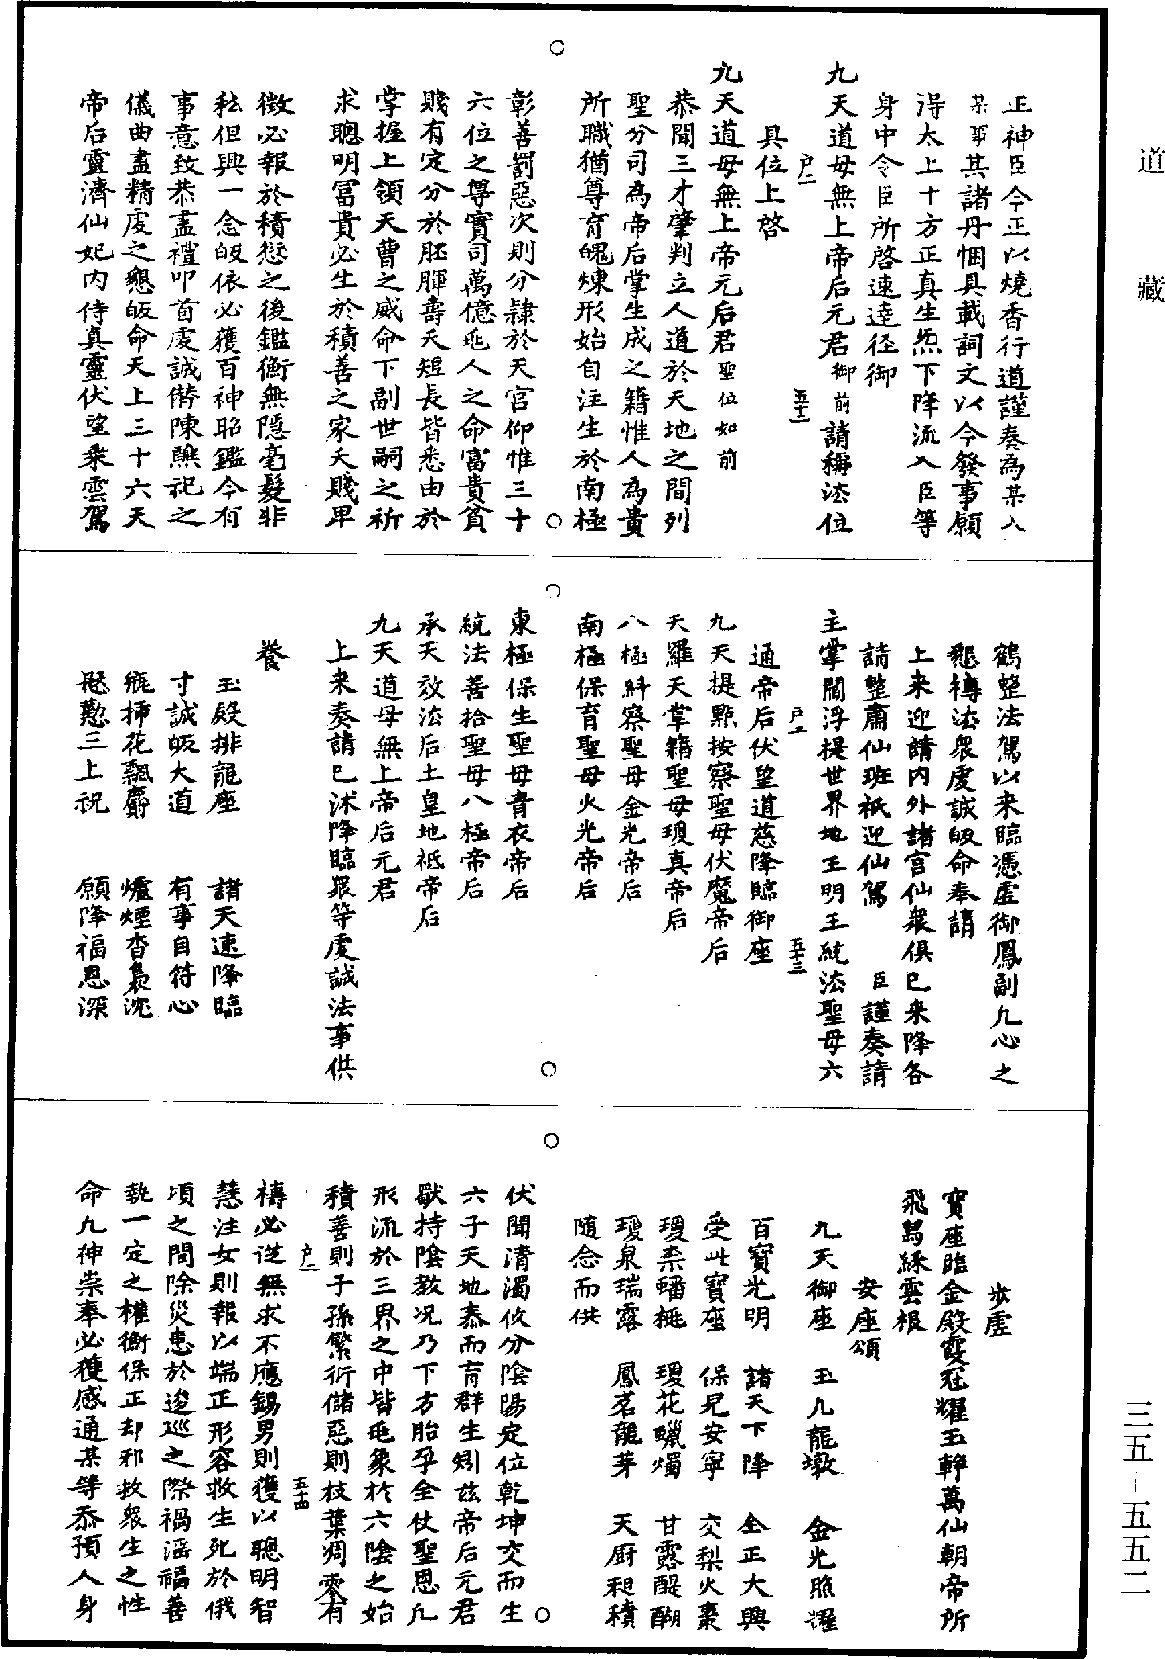 道藏
正神臣今正以燒香行道謹奏為某入
某事其諸丹悃具載詞文以今發事願
得太上十方正真生炁下降流入臣等
身中令臣所啓速達径御
九天道母無上帝后元君御前請稱法位
具位上啓
九天道母無上帝元后君聖位如前
恭聞三才肇判立人道於天地之間列
聖分司為帝后掌生成之籍惟人為貴
所職猶尊育魄煉形始自注生於南極
彰善罰惡次則分隷於天官仰惟三十
六位之尊實司萬億兆人之命富貴貧
賤有定分於胚腪壽夭短長皆悉由於
掌握上領天曹之威命下副世嗣之祈
求聰明冨貴必生於積善之家夭賤卑
微必報於積愆之後鑑衡無隱毫髮非
私但興一念皈依必獲百神昭鑑今有
事意致恭盡禮叩首虔誠僃陳醮祀之
儀曲盡精虔之懇皈命天上三十六天
帝后靈濟仙妃内侍真靈伏望乘雲駕
鶴整法駕以来臨憑虛御鳳副凡心之
懇禱法衆虔誠皈命奉請
上来迎請内外諸宫仙衆俱已来降各
請整肅仙班祇迎仙駕 臣謹奏請
主掌閻浮提世界地王明王統法聖母六
通帝后伏望道慈降臨御座
九天提點按察聖母伏魔帝后
天羅天掌籍聖母瓊真帝后
八極糾察聖母金光帝后
南極保育聖母火光帝后
東極保生聖母青衣帝后
統法善拾聖母八極帝后
承天效法后土皇地祇帝后
九天道母無上帝后元君
上来奏請已沭降臨衆等虔誠法事供
養
玉殿排龍座 諸天速降臨
寸誠皈大道 有事自符心
瓶揷花飄麝 爐煙杳裊沈
慇懃三上祝 願降福恩深
步虛
寳座臨金殿霞冠耀玉軿萬仙朝帝所
飛舄綵雲根
安座頌
九天御座 玉九龍墩 金光照躍
百寳光明 諸天下降 全正大興
受此寳座 保兒安寧 交梨火棗
瓊柰蟠桃 瓊花蠟燭 甘露醍醐
瓊泉瑞露 鳳茗龍芽 天厨秬積
随念而供
伏聞清濁攸分陰陽定位乾坤交而生
六子天地泰而育群生矧兹帝后元君
歇持陰教况乃下方胎孕全仗聖恩凡
形流於三界之中皆兆象於六陰之始
積善則子孫繁衍儲惡則枝葉凋零有
禱必從無求不應錫男則獲以聰明智
慧注女則報以端正形容救生死於俄
頃之間除災患於逡巡之際禍滛福善
執一定之權衡保正却邪救衆生之性
命九神崇奉必獲感通某等忝預人身
三五-五五二